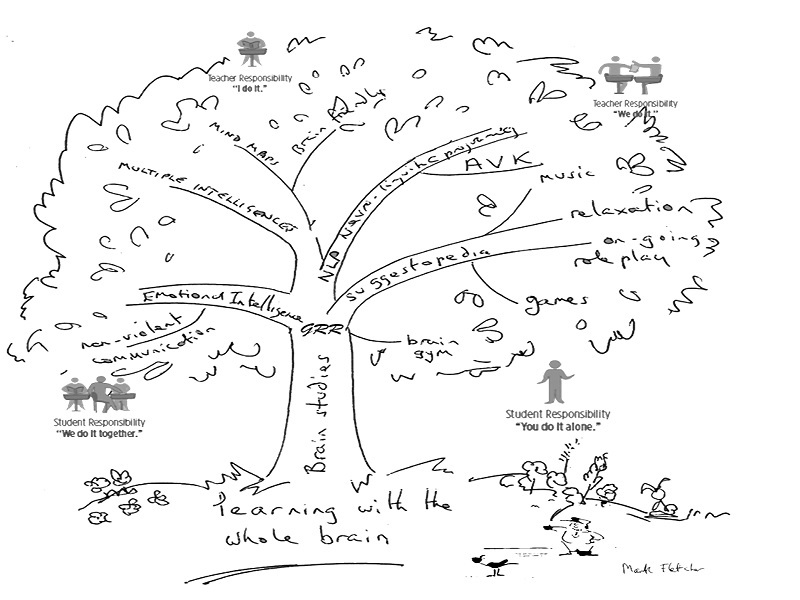 Teacher Responsibility
"I do it."
Teacher Responsibility
"We do it."
MIND MAPS
Brain friendly
MULTIPLE INTELLIGENCES
NLP Neuro-linguistic programming
AVK
music
relaxation
suggestopedia
on-going
role play
games
Emotional Intelligence
non-violent
communication
GRR
brain
gym
Brain studies
Student Responsibility
"We do it together."
Student Responsibility
"You do it alone."
learning with the
whole brain
Mark Fletcher